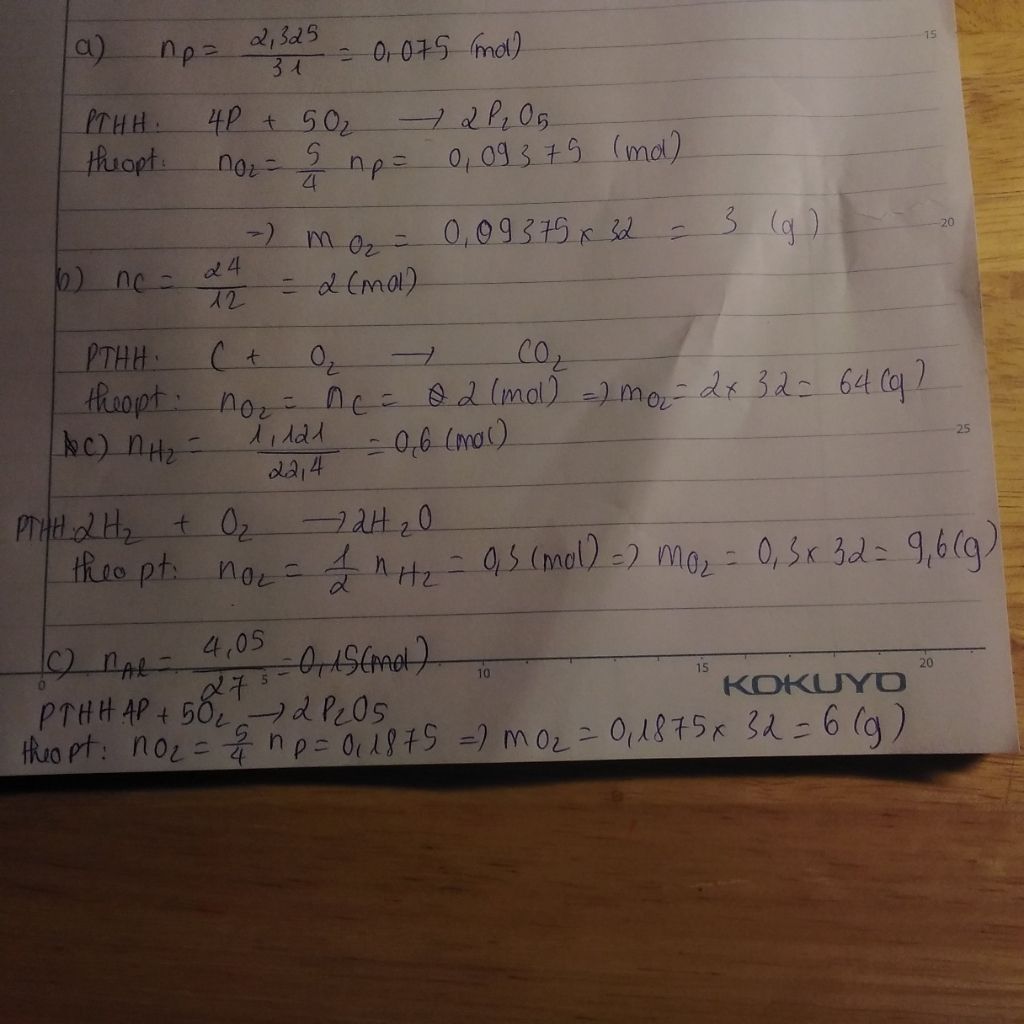 a) nP = 2,325/31 = 0,075 (mol)
15
PTHH: 4P + 5O₂ → 2P₂O₅
theo pt: nO₂ = 5/4 nP = 0,09375 (mol)
=) mO₂ = 0,09375 x 32 = 3 (g)
20
b) nC = 24/12 = 2 (mol)
PTHH: C + O₂ → CO₂
theo pt: nO₂ = nC = 2 (mol) =) mO₂ = 2 x 32 = 64 (g)
c) nH₂ = 1,121/22,4 = 0,6 (mol)
25
PTHH: 2H₂ + O₂ → 2H₂O
theo pt: nO₂ = 1/2 nH₂ = 0,3 (mol) =) mO₂ = 0,3 x 32 = 9,6 (g)
c) nAl = 4,05/27 = 0,15 (mol)
0 5 10 15 20
KOKUYO
PTHH 4P + 5O₂ → 2P₂O₅
theo pt: nO₂ = 5/4 nP = 0,1875 =) mO₂ = 0,1875 x 32 = 6 (g)